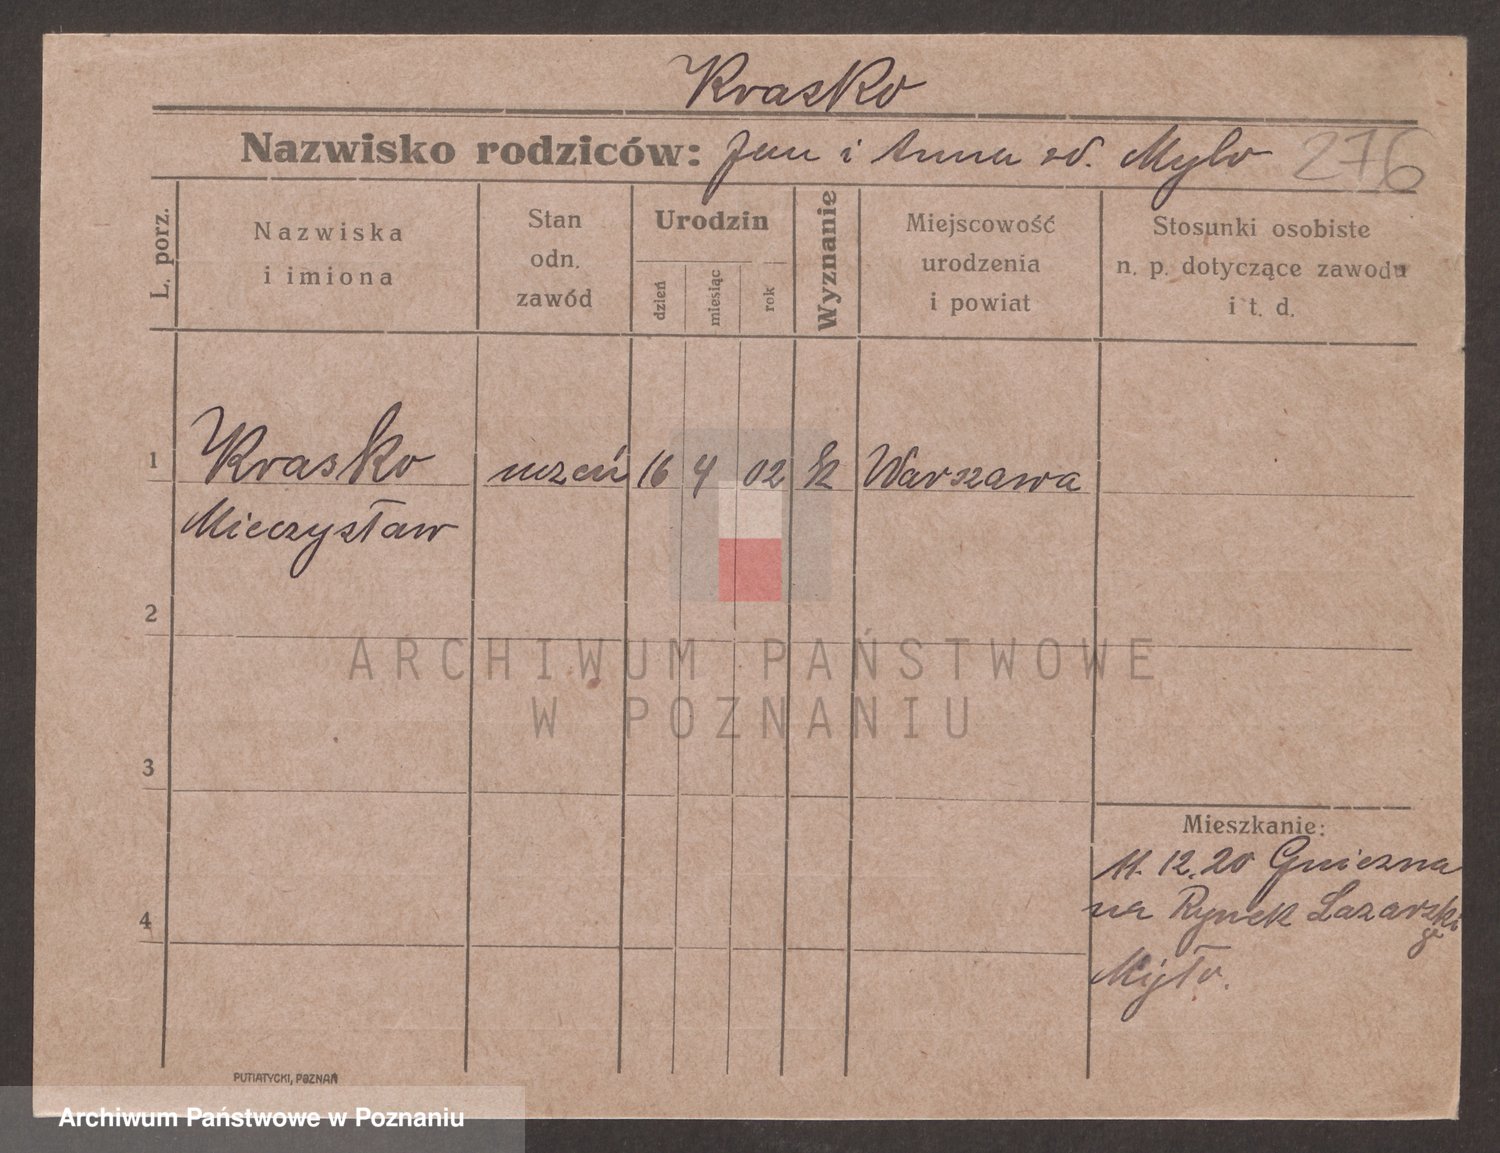 Krasko
Nazwisko rodziców: Jan i Anna od. Mylo 276
L. porz.
Nazwiska
i imiona
Stan
odn.
zawód
Urodzin
dzień
miesiąc
rok
Wyznanie
Miejscowość
urodzenia
i powiat
Stosunki osobiste
n. p. dotyczące zawodu
i t. d.
1 Krasko uczeń 16 4 02 k Warszawa
Mieczysław
2
3
4
Mieszkanie:
11.12.20 Gniezna
na Rynek Lazarski
Myło.
PUTIATYCKI, POZNAŃ
ARCHIWUM PAŃSTWOWE
W POZNANIU
Archiwum Państwowe w Poznaniu